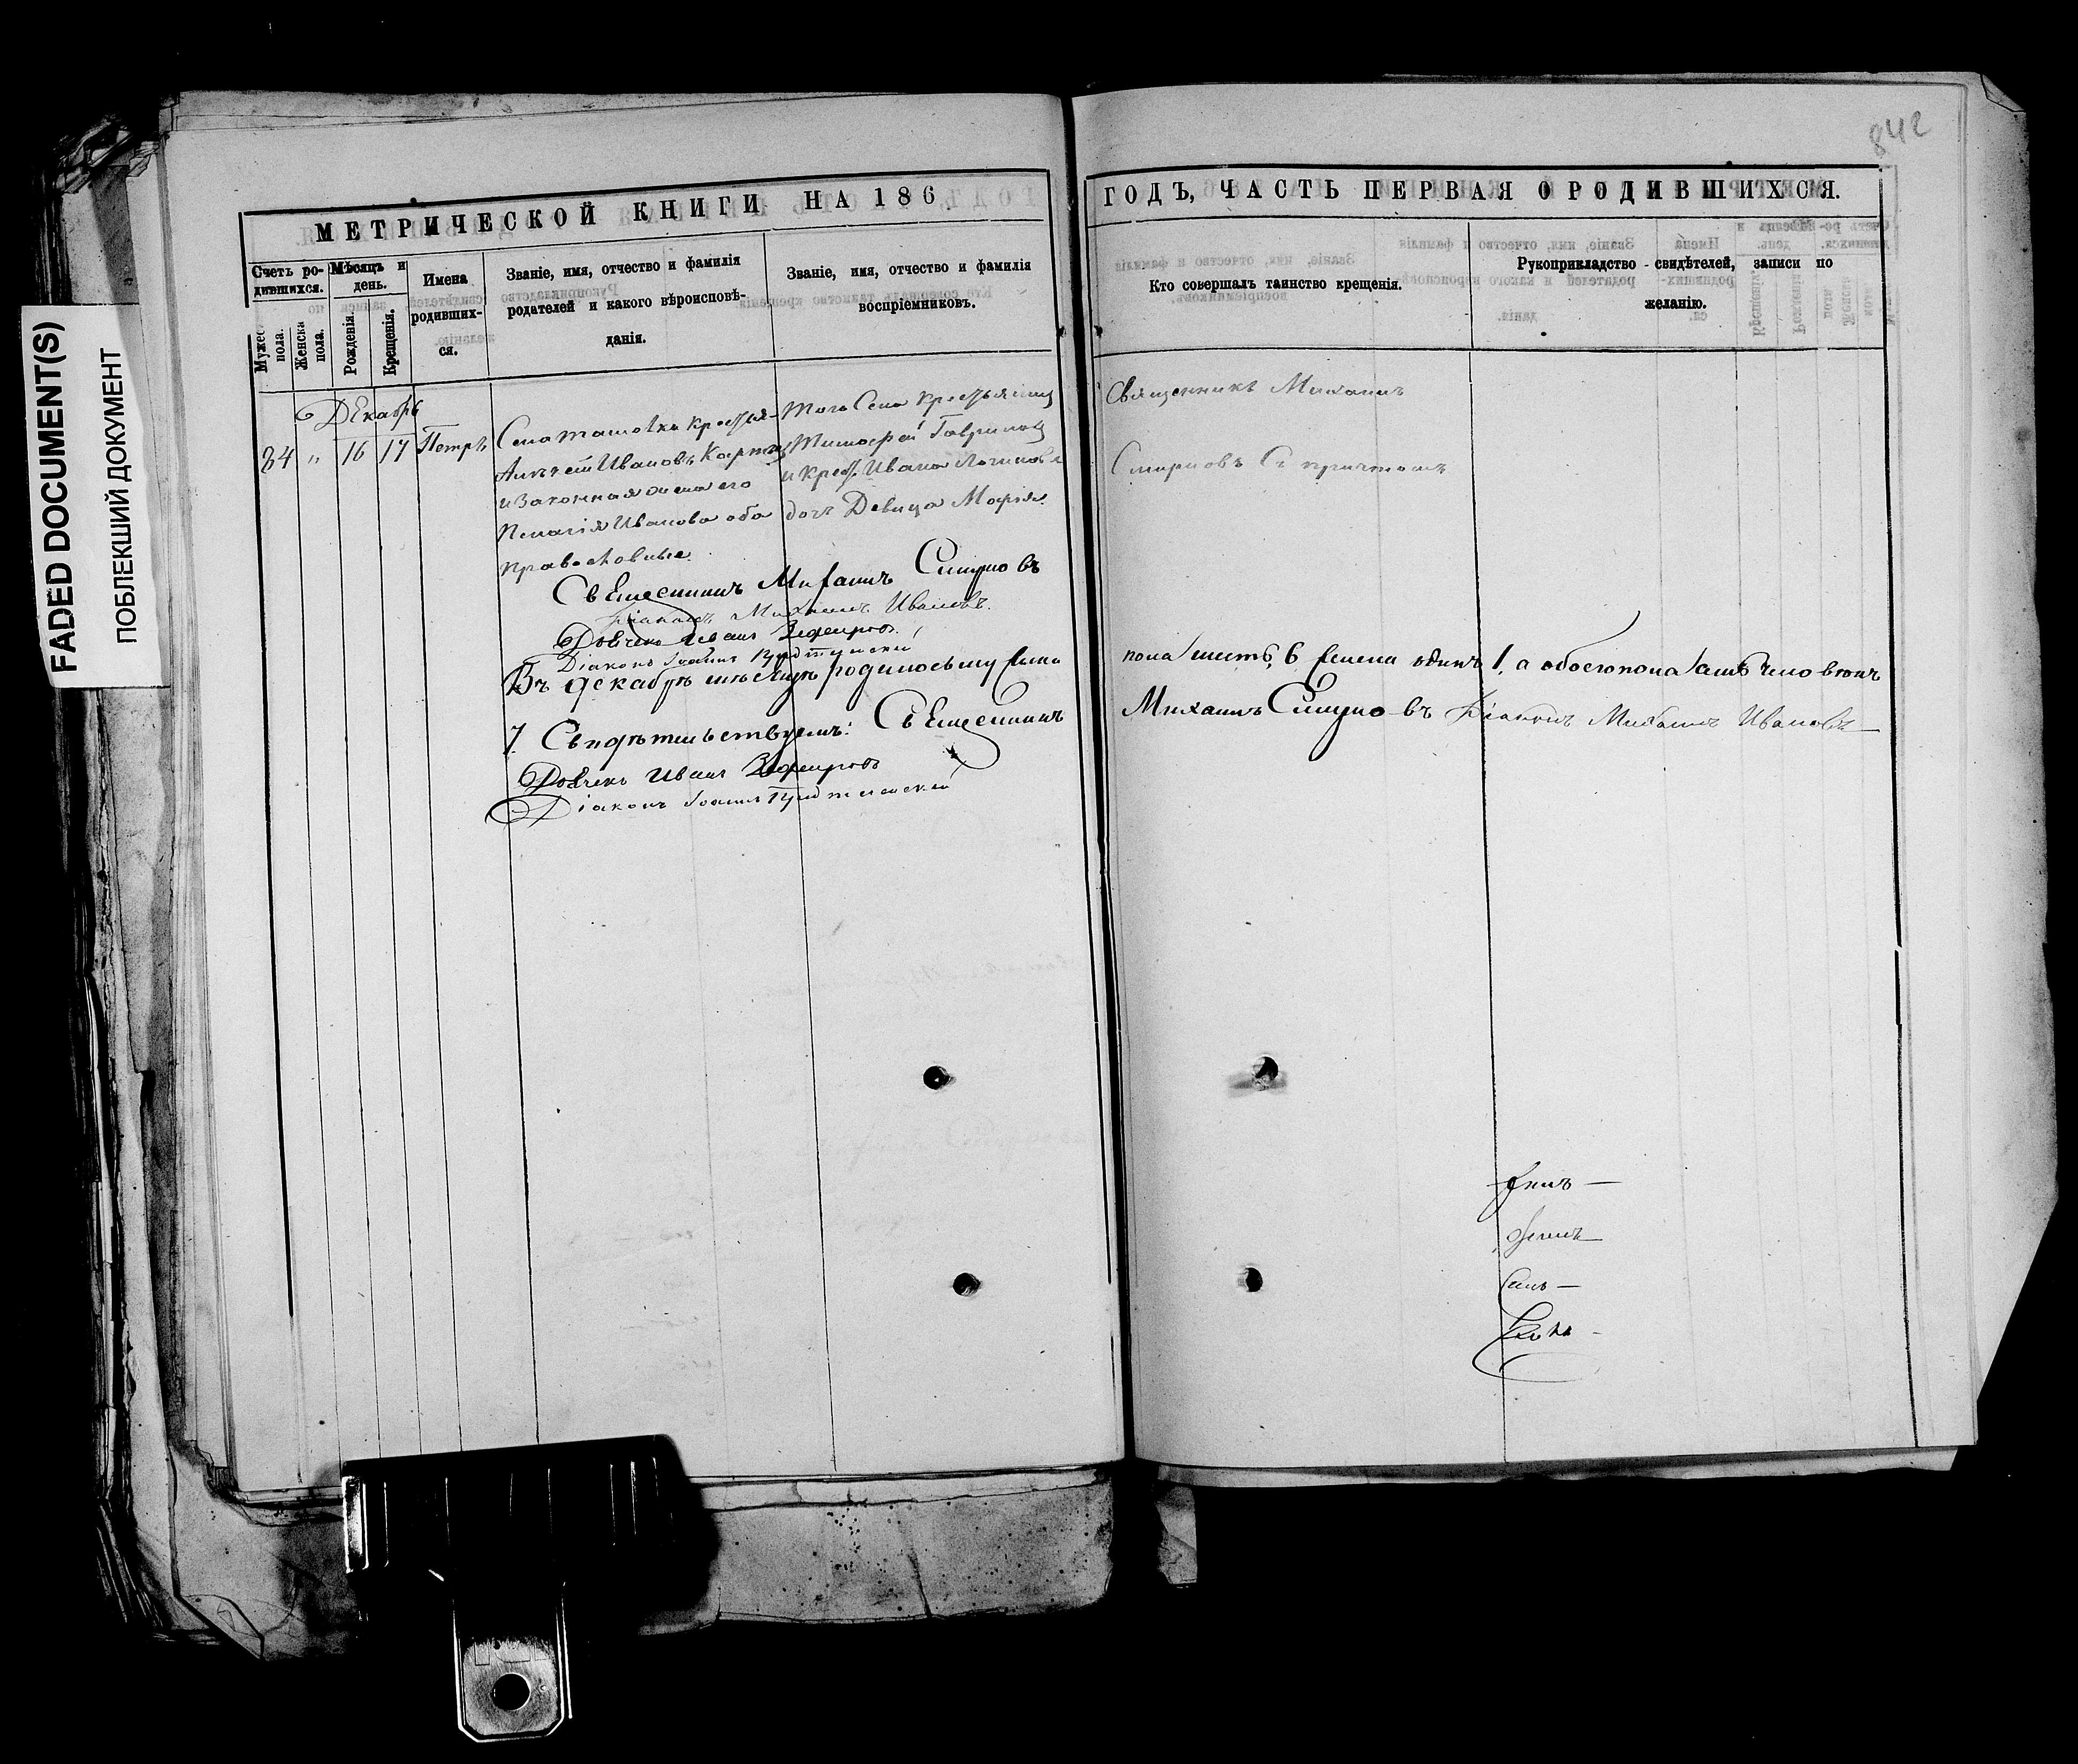 FADED DOCUMENT(S)
ПОБЛЕКШИЙ ДОКУМЕНТ
842
МЕТРИЧЕСКОЙ КНИГИ НА 186
ГОДЪ, ЧАСТЬ ПЕРВАЯ О РОДИВШИХСЯ.
Счетъ ро-
дившихся.
Мужеска
пола.
Женска
пола.
Мѣсяцъ и
день.
Рожденія.
Крещенія.
Имена
родивших-
ся.
Званіе, имя, отчество и фамилія
родителей и какого вѣроисповѣ-
данія.
Званіе, имя, отчество и фамилія
воспріемниковъ.
Кто совершалъ таинство крещенія.
Рукоприкладство свидѣтелей, записи по
желанію.
Декабрь
84 „ 16 17 Петръ
Села крестья-
Алексѣй Ивановъ
и Законная жена его
Пелагія Иванова оба
православные.
Того Села Крестьянинъ
Тимофей Гавриловъ
и Крест. Ивана
доч Девица Марія.
Священникъ Михаилъ
Смирновъ Съ причтомъ
Священникъ Михаилъ Смирновъ
Діаконъ Михаилъ Ивановъ.
Иванъ Зефировъ
Діаконъ Іоаннъ
Въ декабрѣ мѣсяцѣ родилось муж.
пола шесть, 6 женска одинъ 1, а обоего пола семь человѣкъ
7. Свидѣтельствуемъ: Священникъ
Михаилъ Смирновъ Діаконъ Михаилъ Ивановъ
Иванъ Зефировъ
Діаконъ Іоаннъ